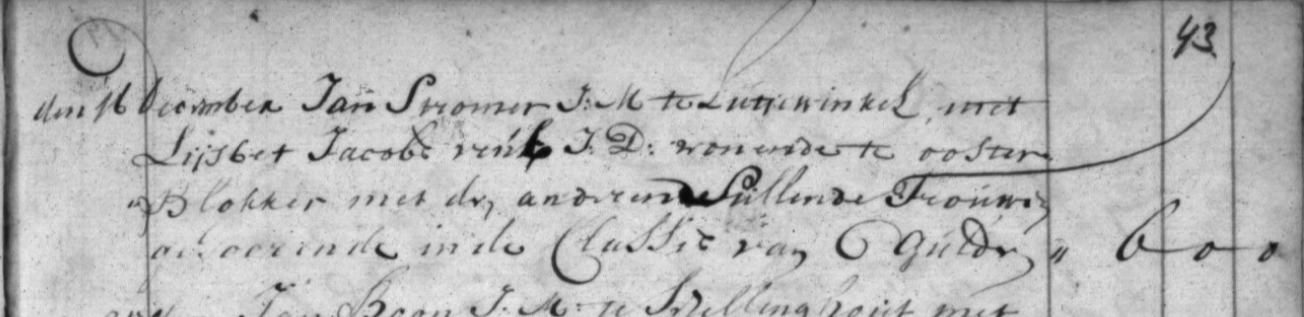 43
den 16 December Jan Stromer J: M te Lutjewinkel, met
Lijsbet Jacobs J: D: wonende te ooster
Blokker met dry andren Sullende Trouwe
gehoorende in de Classis van 6 Guldn " 6 - o - o
Jan J: M: te Schellinghout met